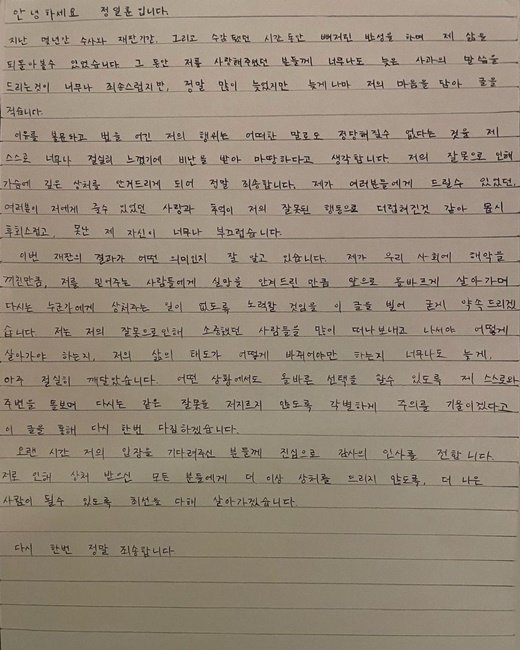 안녕하세요 정일훈입니다.
지난 몇년간 수사와 재판기간, 그리고 수감됐던 시간동안 뼈저린 반성을 하며 제 삶을
되돌아볼수 있었습니다. 그 동안 저를 사랑해주셨던 분들께 너무나도 늦은 사과의 말씀을
드리는것이 너무나 죄송스럽지만, 정말 많이 늦었지만 늦게나마 저의 마음을 담아 글을
적습니다.
이유를 불문하고 법을 어긴 저의 행위는 어떠한 말로도 정당해질수 없다는 것을 제
스스로 너무나 절실히 느꼈기에 비난을 받아 마땅하다고 생각합니다. 저의 잘못으로 인해
가슴에 깊은 상처를 안겨드리게 되어 정말 죄송합니다. 제가 여러분들에게 드릴수 있었던,
여러분이 저에게 줄수 있었던 사랑과 추억이 저의 잘못된 행동으로 더럽혀진것 같아 몹시
후회스럽고, 못난 제 자신이 너무나 부끄럽습니다.
이번 재판의 결과가 어떤 의미인지 잘 알고 있습니다. 제가 우리 사회에 해악을
끼친만큼, 저를 믿어주는 사람들에게 실망을 안겨드린 만큼 앞으로 올바르게 살아가며
다시는 누군가에게 상처주는 일이 없도록 노력할 것임을 이 글을 빌어 굳게 약속드리겠
습니다. 저는 저의 잘못으로인해 소중했던 사람들을 많이 떠나보내고 나서야 어떻게
살아가야 하는지, 저의 삶의 태도가 어떻게 바뀌어야만 하는지 너무나도 늦게,
아주 절실히 깨달았습니다. 어떤 상황에서도 올바른 선택을 할수 있도록 제 스스로와
주변을 돌보며 다시는 같은 잘못을 저지르지 않도록 각별하게 주의를 기울이겠다고
이 글을 통해 다시 한번 다짐하겠습니다.
오랜 시간 저의 입장을 기다려주신 분들께 진심으로 감사의 인사를 전합니다.
저로 인해 상처 받으신 모든 분들에게 더 이상 상처를 드리지 않도록, 더 나은
사람이 될수 있도록 최선을 다해 살아가겠습니다.
다시 한번 정말 죄송합니다